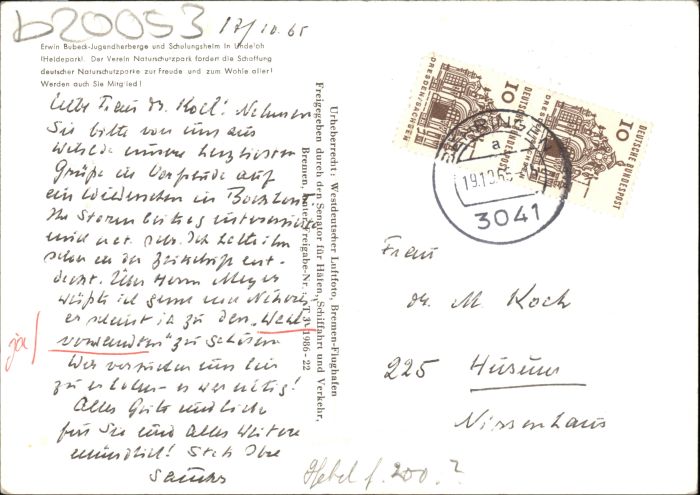 b20053
17/10.65
Erwin Bubeck-Jugendherberge und Schulungsheim in Undeloh
(Heidepark). Der Verein Naturschutzpark fördert die Schaffung
deutscher Naturschutzparke zur Freude und zum Wohle aller!
Werden auch Sie Mitglied!
Liebe Frau Dr. Koch! Nehmen
Sie bitte von uns aus
Wilsede unsere herzlichsten
Grüße in Vorfreude auf
ein Wiedersehen in
Ihr Storm
sehr. Ich hatte ihn
schon in der Zeitschrift ent-
deckt. Über Herrn Meyer
wüßte ich gerne mal Näheres
er scheint ja zu den "Wahl-
verwandten" zu gehören
Wir versuchen uns hier
zu erholen - es war nötig!
Alles Gute und Liebe
für Sie und alles Weitere
mündlich! Stets Ihre
ja
Urheberrecht: Westdeutscher Luftfoto, Bremen-Flughafen
Freigegeben durch den Senator für Häfen, Schiffahrt und Verkehr,
Bremen, unter Freigabe-Nr.: LT 3 1986-22
DEUTSCHE BUNDESPOST
10
DRESDEN/SACHSEN
DEUTSCHE BUNDESPOST
10
DRESDEN/SACHSEN
a
19.10.65
3041
Frau
Dr. M. Koch
225 Husum
Nissenhaus
Hebel f. 200.?